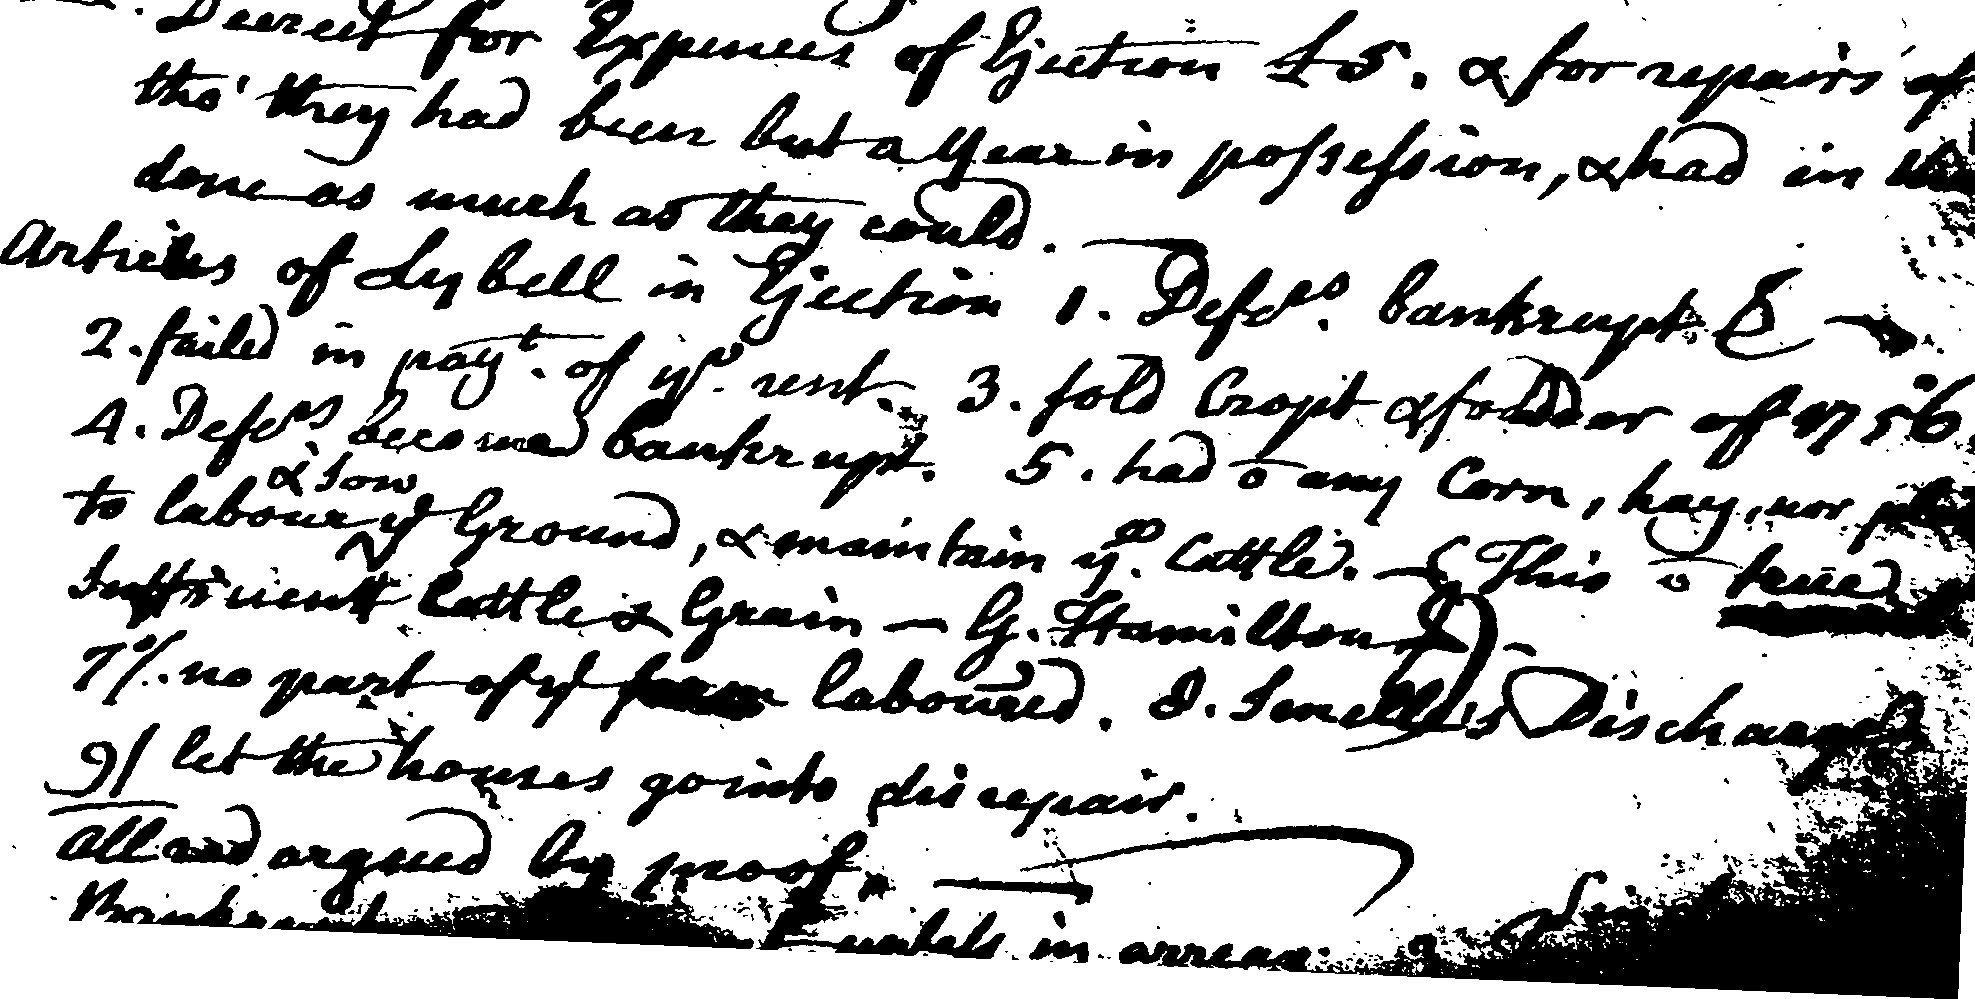 Decreet for Expences of Ejection £5. & for repairs of
tho' they had been but a year in possession, & had in
done as much as they could.
Articles of Lybell in Ejection 1. Defdrs. bankrupt &
2. failed in payt. of yr. rent. 3. sold Cropt & fodder off 1756
4. Defdrs. become bankrupt. 5. had o any Corn, hay, nor
& sow
to labour ye Ground, & maintain yr. Cattle. — (This o true
Sufficient Cattle & Grain — G. Hamilton)
7/. no part of ye farm laboured. 8. Smellie's Discharge
9/ let the houses go into disrepair.
all and argued by proof,
in arrear.